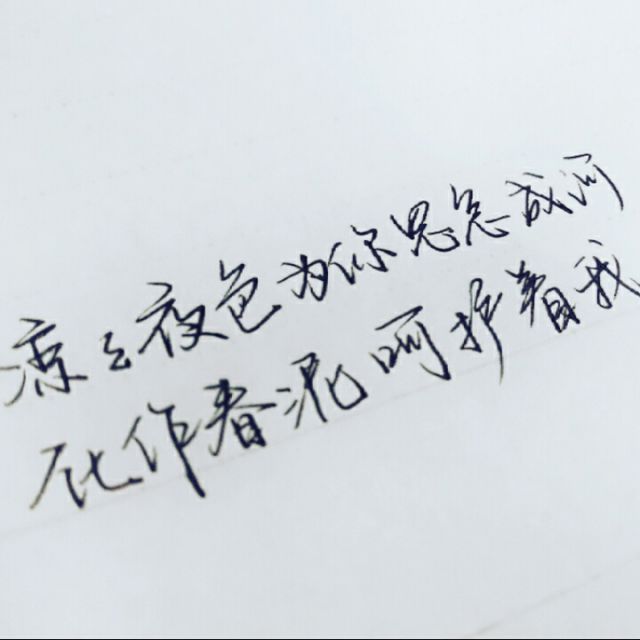 凉々夜色为你思念成河
化作春泥呵护着我